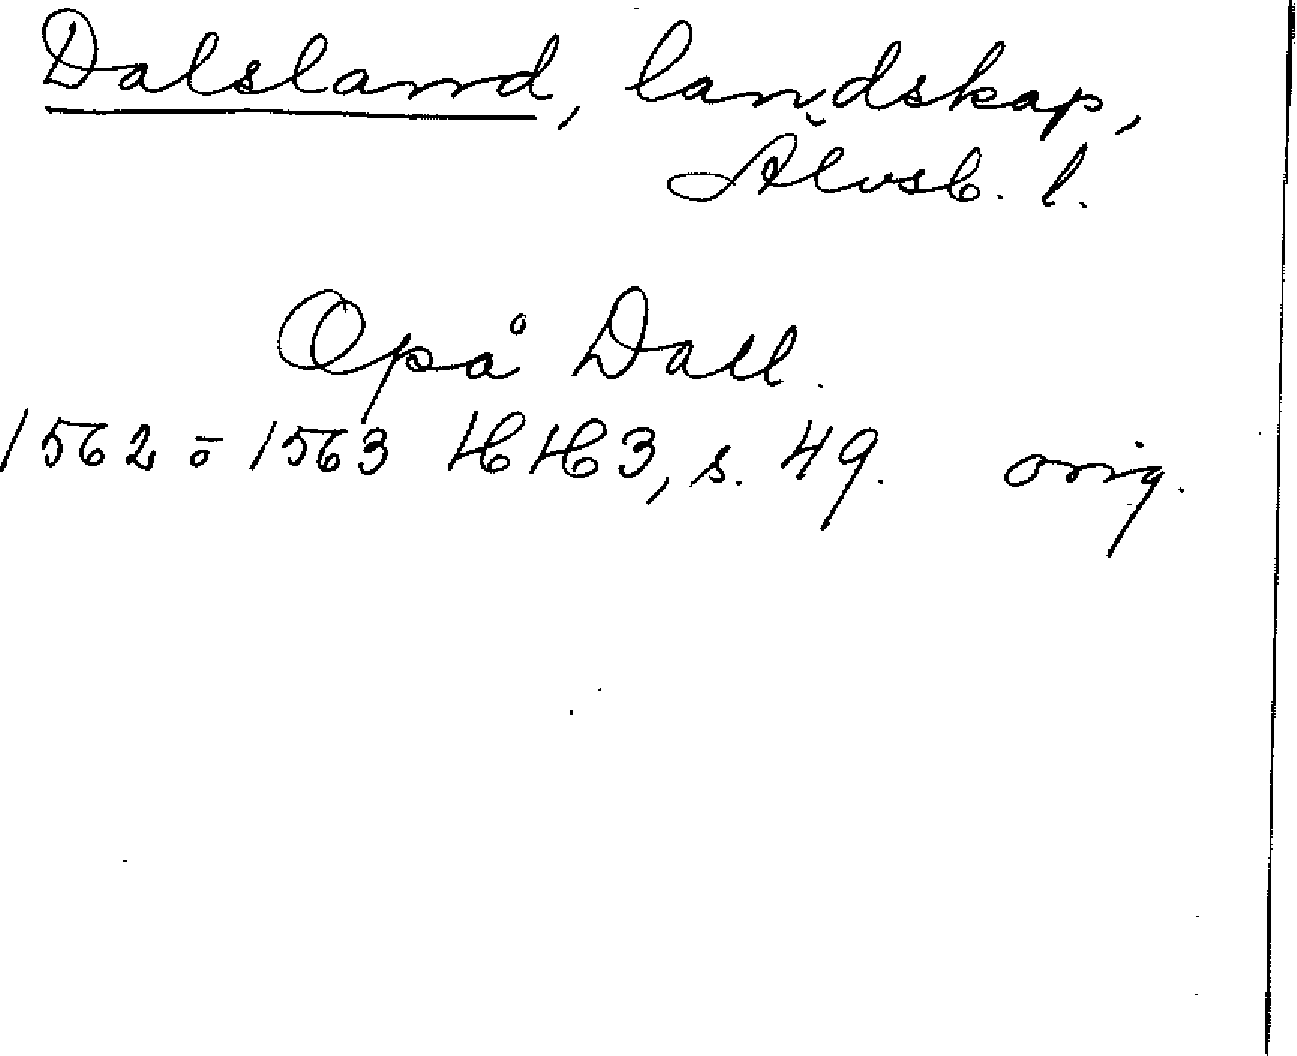 Dalsland, landskap,
Älvsb. l.
Opå Dall.
1562 o 1563 HH3, s. 49. orig.